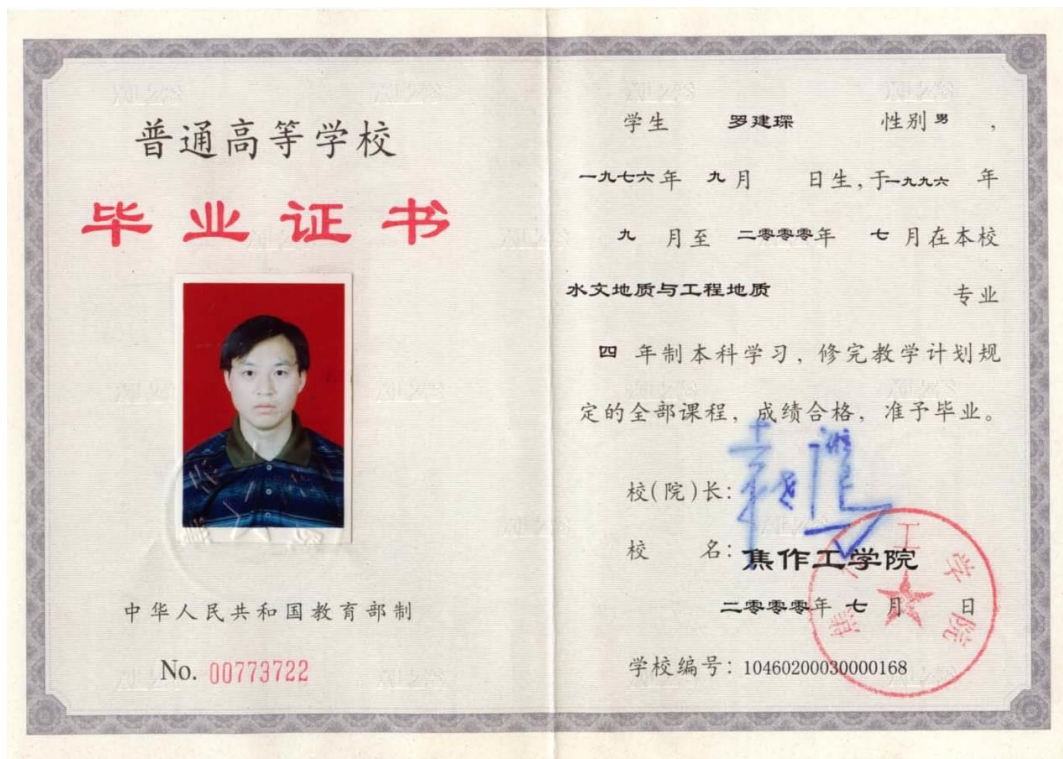 普通高等学校
毕业证书
中华人民共和国教育部制
No. 00773722
学生 罗建琛 性别 男 ,
一九七六年 九月 日生,于一九九六 年
九 月至 二零零零年 七 月在本校
水文地质与工程地质 专业
四 年制本科学习，修完教学计划规
定的全部课程，成绩合格，准予毕业。
校(院)长:
校 名: 焦作工学院
二零零零年 七 月 日
学校编号: 10460200030000168
工学院